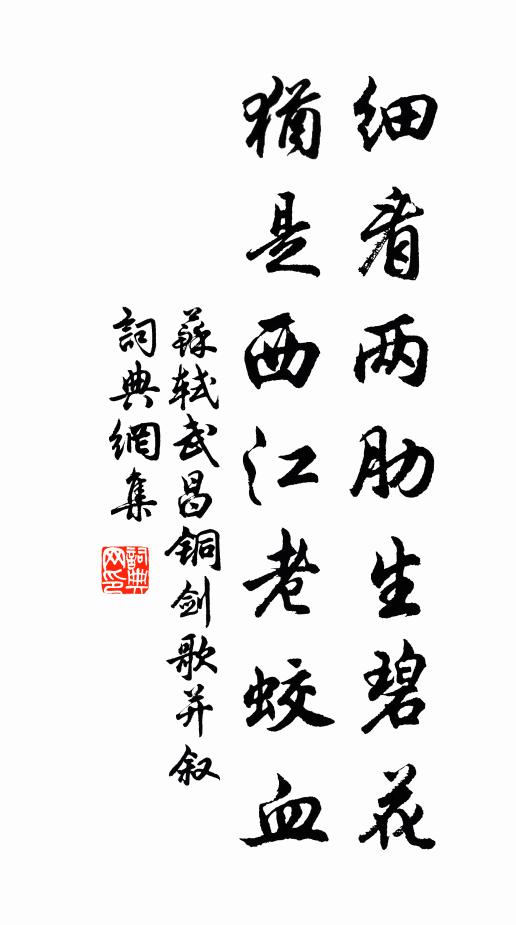 细看两肋生碧花
犹是西江老蛟血
蘇轼武昌铜剑歌并叙
詞典網集
詞典网印